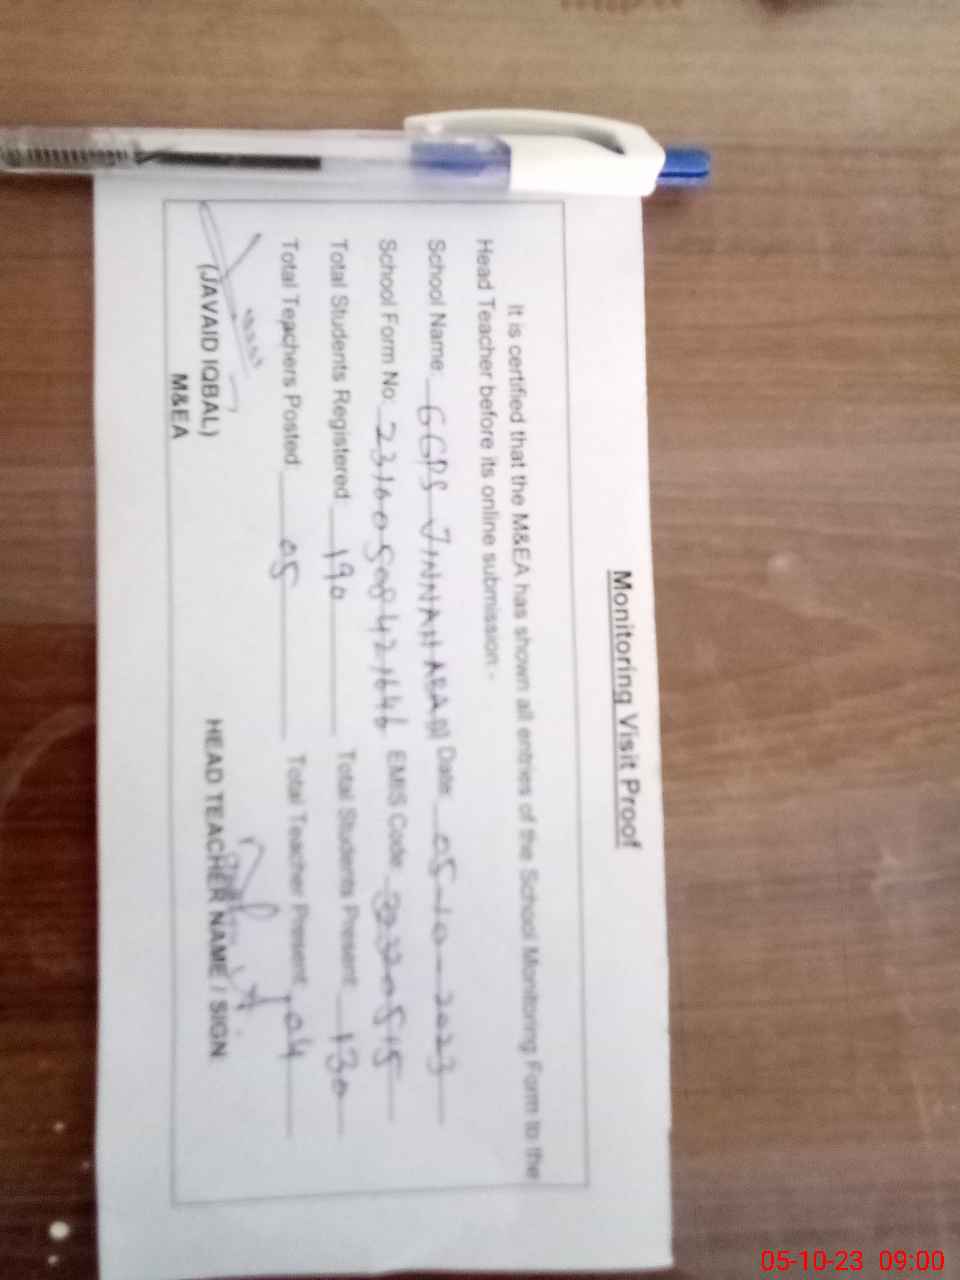 Monitoring Visit Proof
It is certified that the M&EA has shown all entries of the School Monitoring Form to the
Head Teacher before its online submission:-
School Name: GGPS JINNAH ABAD Date: 05-10-2023
School Form No: EMIS Code:
Total Students Registered: 190 Total Students Present: 130
Total Teachers Posted: 05 Total Teacher Present: 04
(JAVAID IQBAL) HEAD TEACHER NAME / SIGN
M&EA
05-10-23 09:00